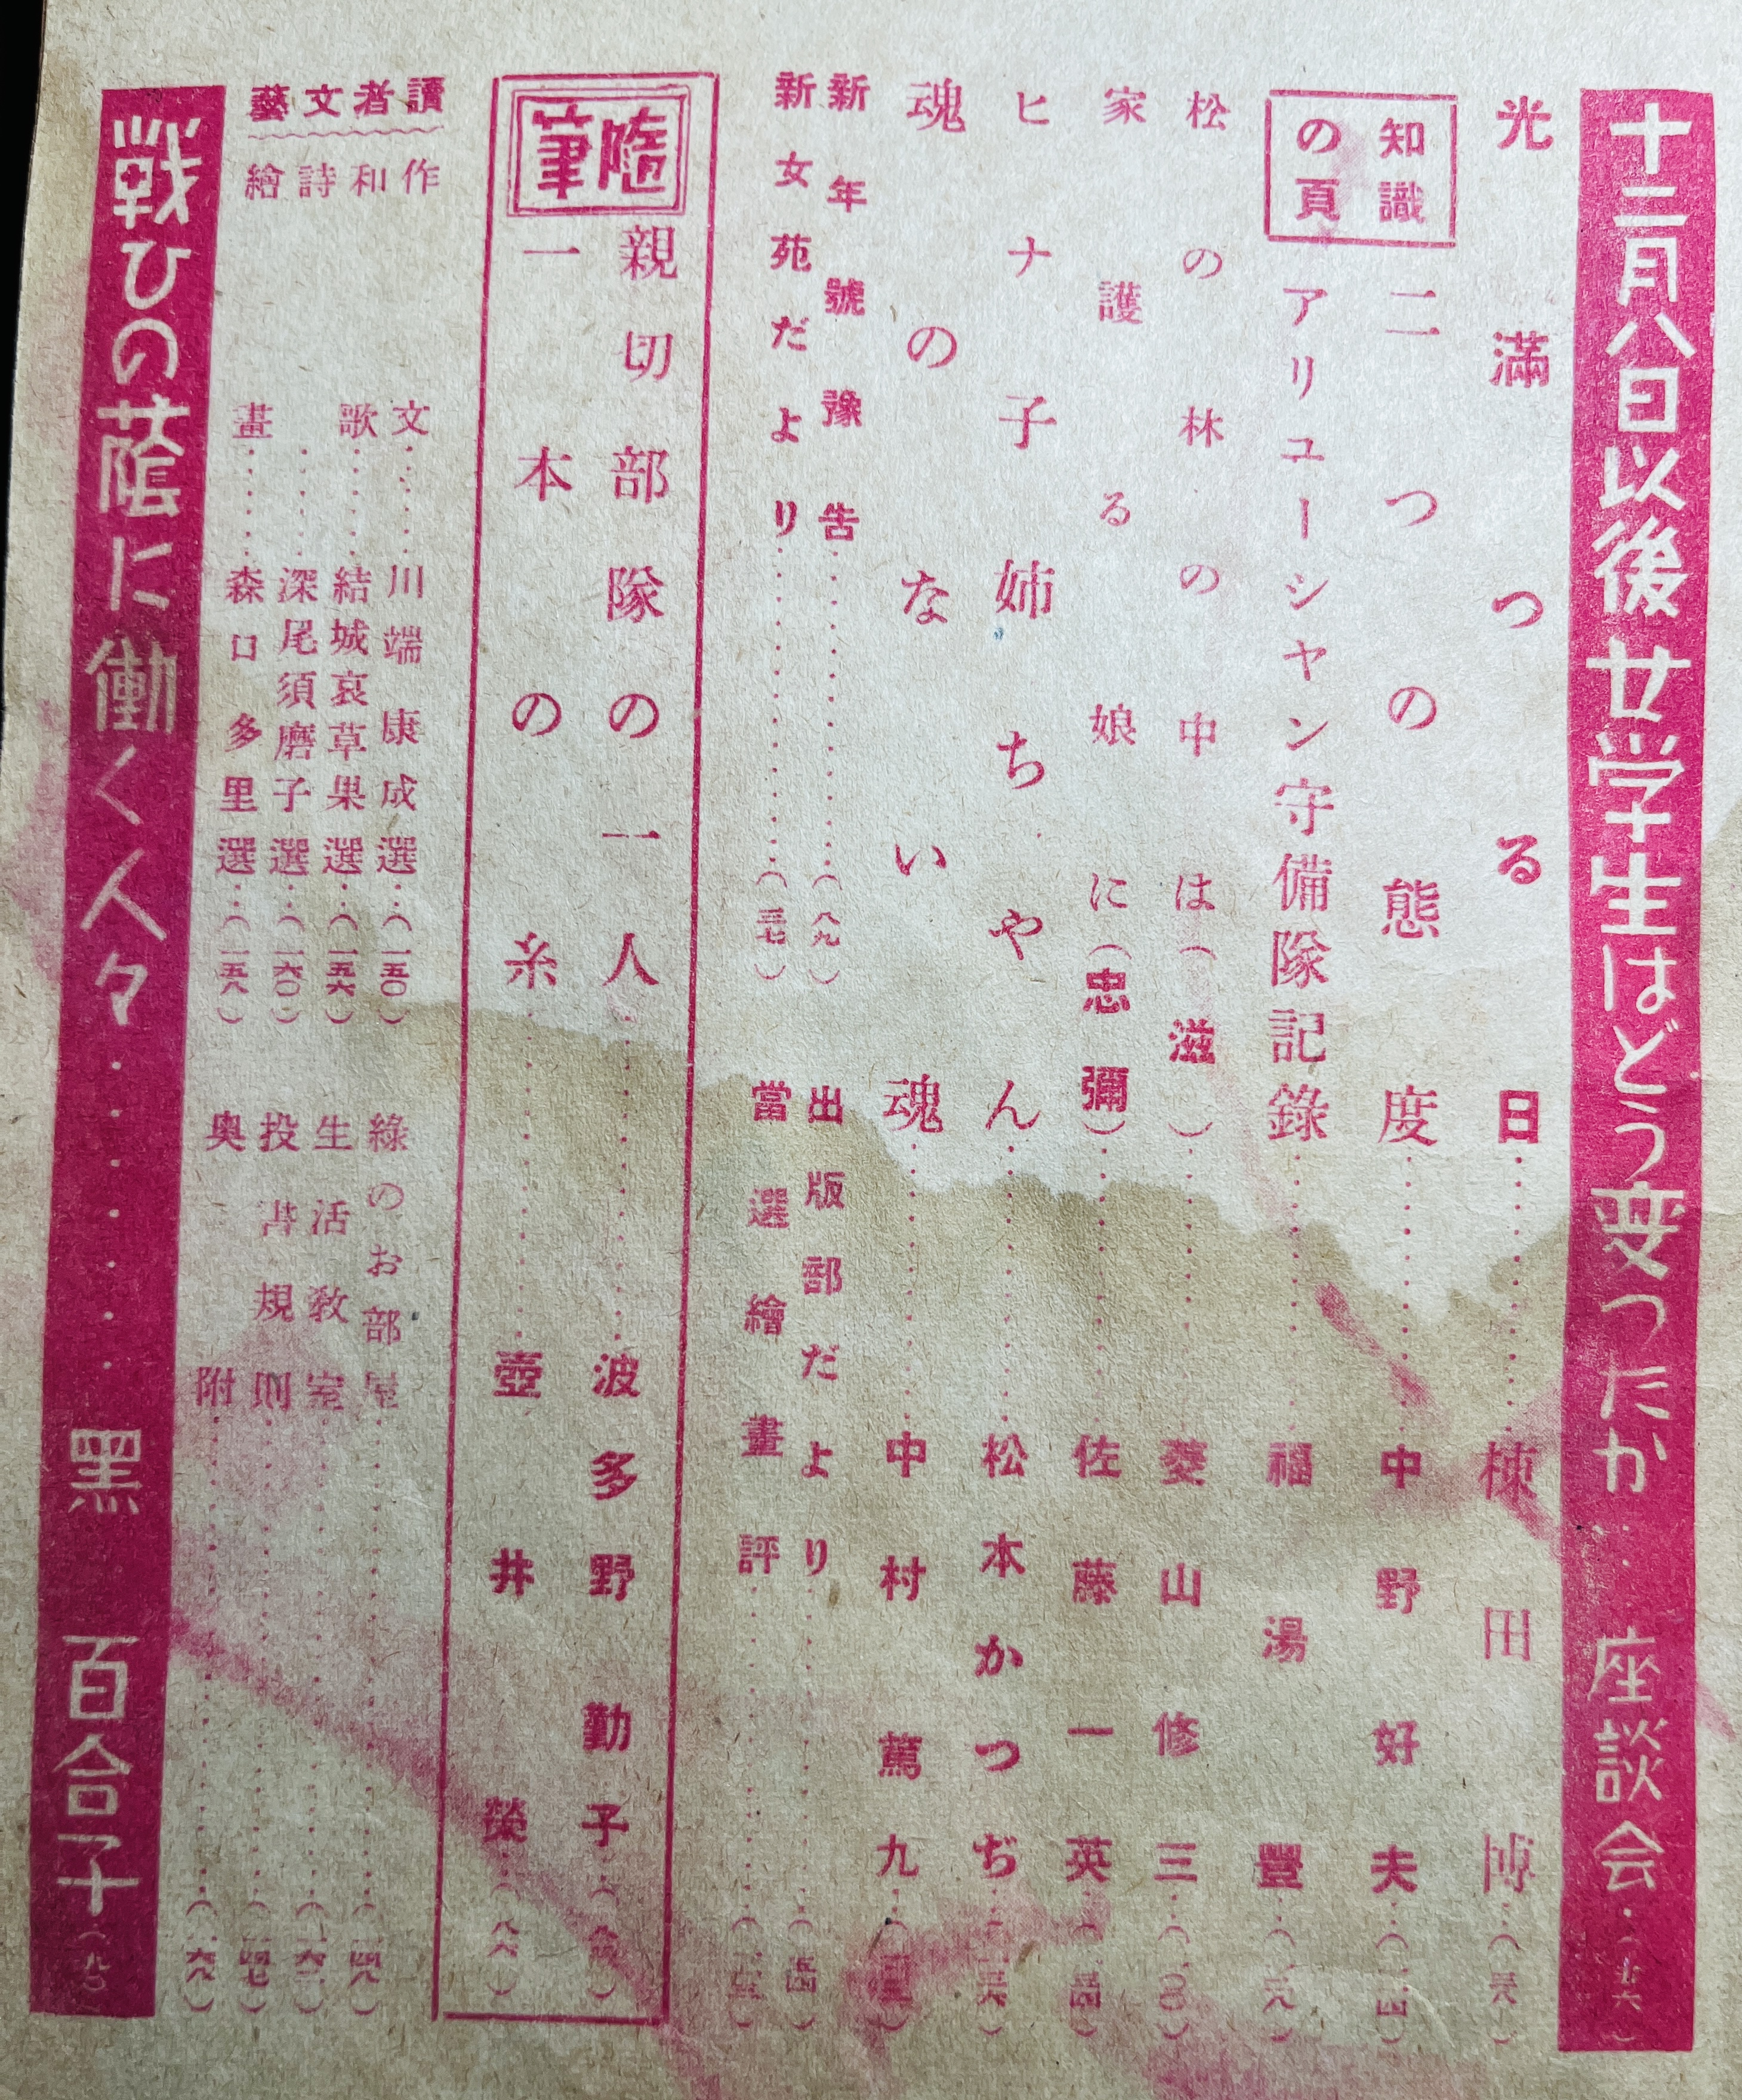 十二月八日以後女学生はどう変つたか……座談会…(七六)
光満つる日……棟田博…(三八)
知識の頁
二つの態度……中野好夫…(一一四)
アリューシャン守備隊記録……福湯豐…(一一九)
松の林の中は(滋)……菱山修三…(一一〇)
家護る娘に(忠彌)……佐藤一英…
ヒナ子姉ちやん……松本かつぢ…
魂のない魂……中村篤九…
新年號豫告……(八九)
出版部だより……
新女苑だより……(三七)
當選繪畫評……
隨筆
親切部隊の一人……波多野勤子…
一本の糸……壺井榮…(八六)
讀者文藝
作文……川端康成選…(一五〇)
和歌……結城哀草果選…(一五六)
詩……深尾須磨子選…(一六〇)
繪畫……森口多里選…(一五八)
綠のお部屋……(一四八)
生活教室……(一六二)
投書規則……(一四七)
奥附……(一六八)
戦ひの蔭に働く人々……黑百合子…(九〇)